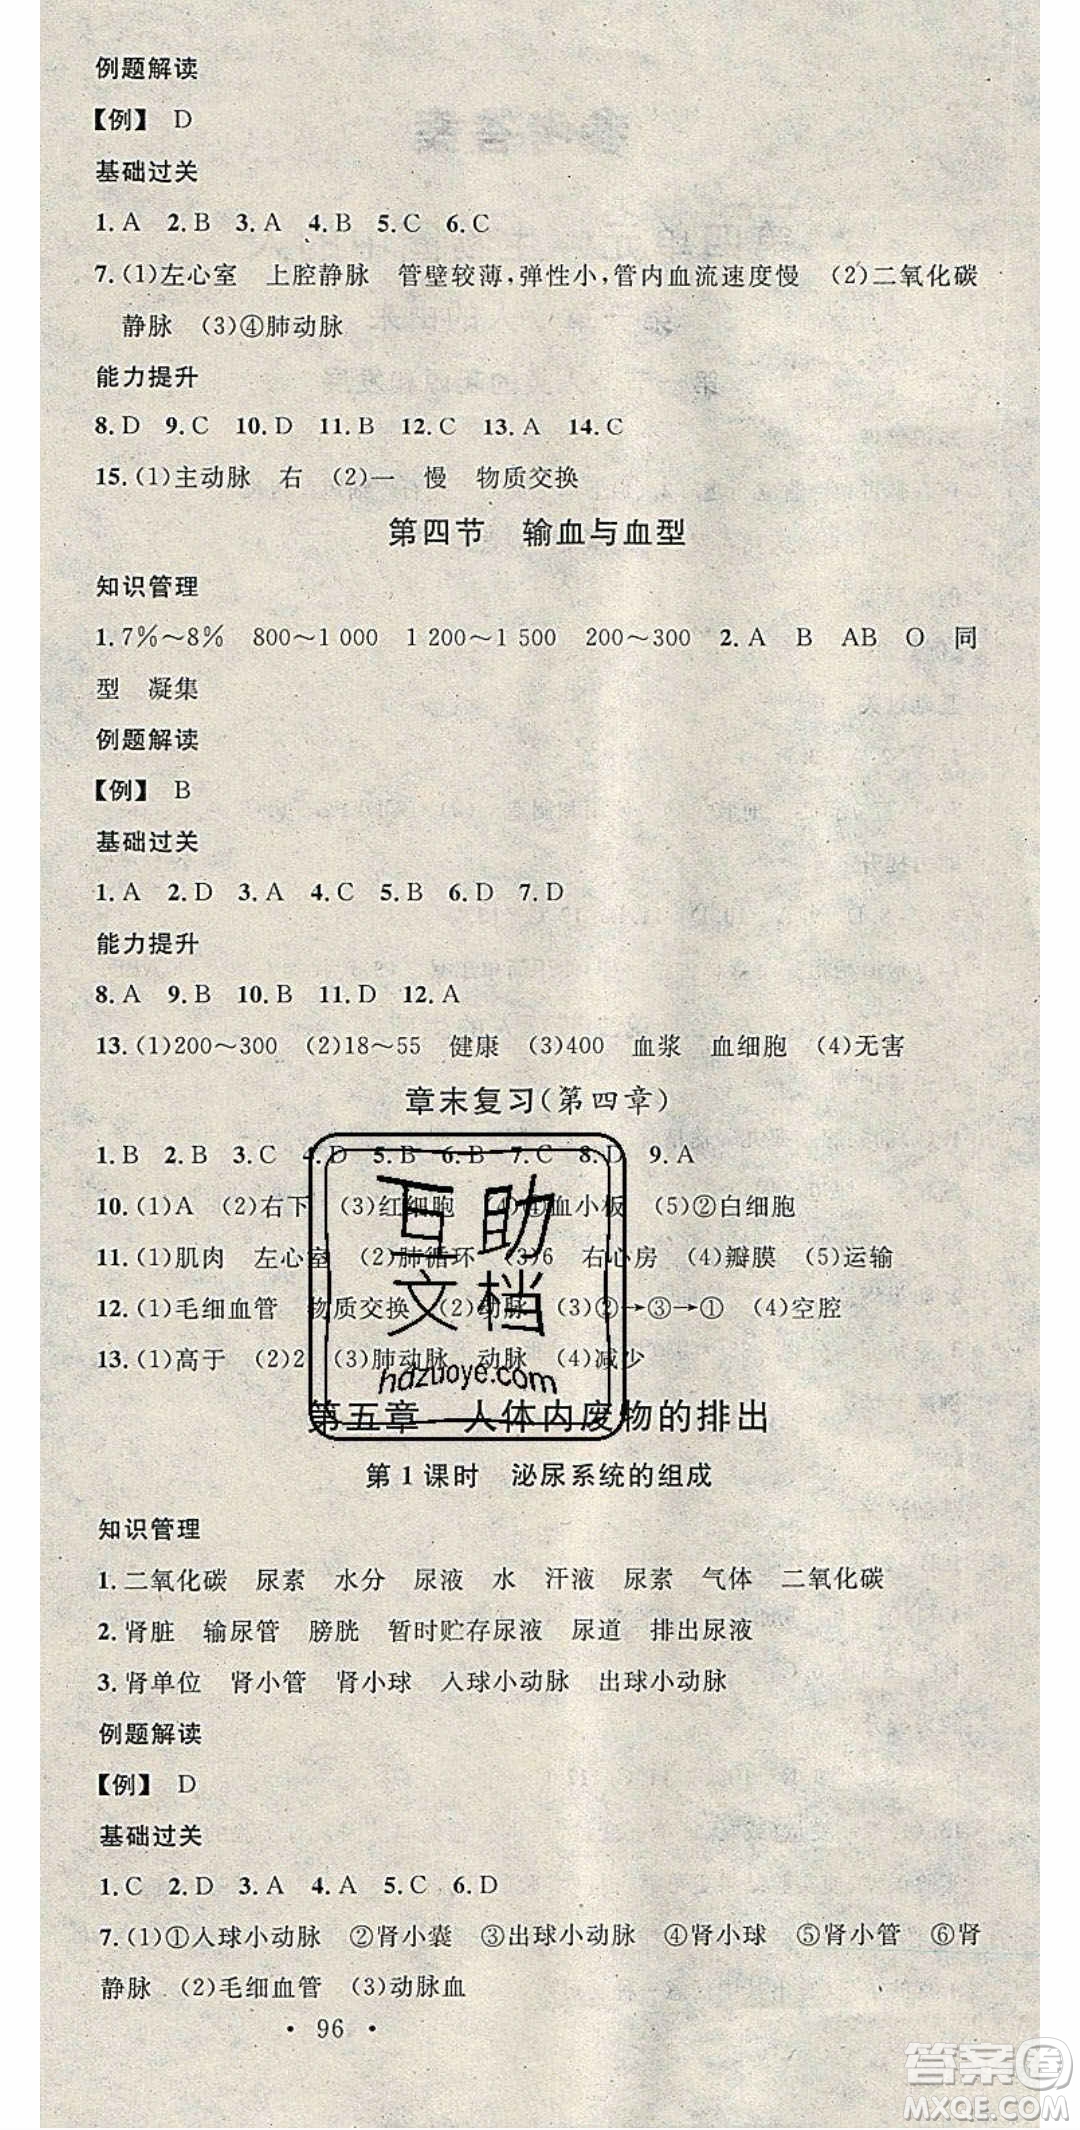 例题解读
【例】 D
基础过关
1. A 2. B 3. A 4. B 5. C 6. C
7. (1)左心室 上腔静脉 管壁较薄,弹性小,管内血流速度慢 (2)二氧化碳
静脉 (3)④肺动脉
能力提升
8. D 9. C 10. D 11. B 12. C 13. A 14. C
15. (1)主动脉 右 (2)一 慢 物质交换
第四节 输血与血型
知识管理
1. 7%～8% 800～1 000 1 200～1 500 200～300 2. A B AB O 同
型 凝集
例题解读
【例】 B
基础过关
1. A 2. D 3. A 4. B 5. D 6. D 7. D
能力提升
8. A 9. B 10. B 11. D 12. A
13. (1)200～300 (2)18～55 健康 (3)400 血浆 血细胞 (4)无害
章末复习(第四章)
1. B 2. B 3. C 4. D 5. B 6. B 7. C 8. D 9. A
10. (1)A (2)右下 (3)红细胞 (4)④血小板 (5)②白细胞
11. (1)肌肉 左心室 (2)肺循环 (3)6 右心房 (4)瓣膜 (5)运输
12. (1)毛细血管 物质交换 (2)动脉 (3)②→③→① (4)空腔
13. (1)高于 (2)2 (3)肺动脉 动脉 (4)减少
互助
文档
hdzuoye.com
第五章 人体内废物的排出
第 1 课时 泌尿系统的组成
知识管理
1. 二氧化碳 尿素 水分 尿液 水 汗液 尿素 气体 二氧化碳
2. 肾脏 输尿管 膀胱 暂时贮存尿液 尿道 排出尿液
3. 肾单位 肾小管 肾小球 入球小动脉 出球小动脉
例题解读
【例】 D
基础过关
1. C 2. D 3. A 4. A 5. C 6. D
7. (1)①入球小动脉 ②肾小囊 ③出球小动脉 ④肾小球 ⑤肾小管 ⑥肾
静脉 (2)毛细血管 (3)动脉血
• 96 •
答案圈
MXQE.COM